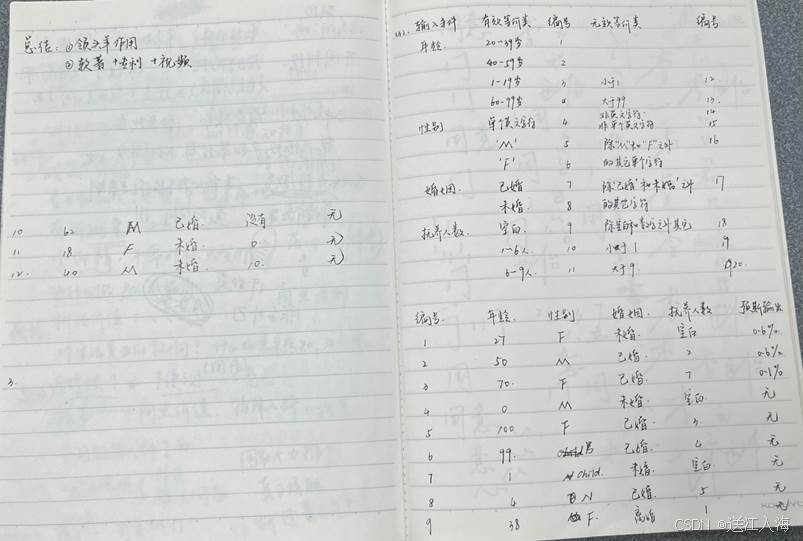 总结: ①领头羊作用
②软著+专利+视频
10 62 M 已婚 没有 无
11 18 F 未婚 0 无
12. 40 M 未婚 10. 无
3.
输入条件 有效等价类 编号 无效等价类 编号
年龄 20-39岁 1
40-59岁 2
1-19岁 3 小于1 12
60-99岁 4 大于99 13.
非英文字符 14
性别 单个英文字符 4 非单个英文字符 15
'M' 5 除"M"和"F"之外 16
'F' 6 的其它单个字符
婚姻 已婚 7 除'已婚'和'未婚'之外 17
未婚 8 的其它字符
抚养人数 空白 9 除空白和数字之外其它 18
1-6人 10 小于1 19
6-9人 11 大于9. 20.
编号 年龄. 性别 婚姻. 抚养人数 预期输出
1 27 F 未婚. 空白 0.6%
2 50 M 已婚. 2 0.6%
3 70. F 已婚. 7 0.1%
4 0 M 未婚 空白 无
5 100 F 已婚. 3. 无
6 99. 男 已婚. 4 无
7 1 Child. 未婚. 空白 无
8 4 N 已婚. 5 无
9 38 F. 离婚 1 无
CSDN @送江入海